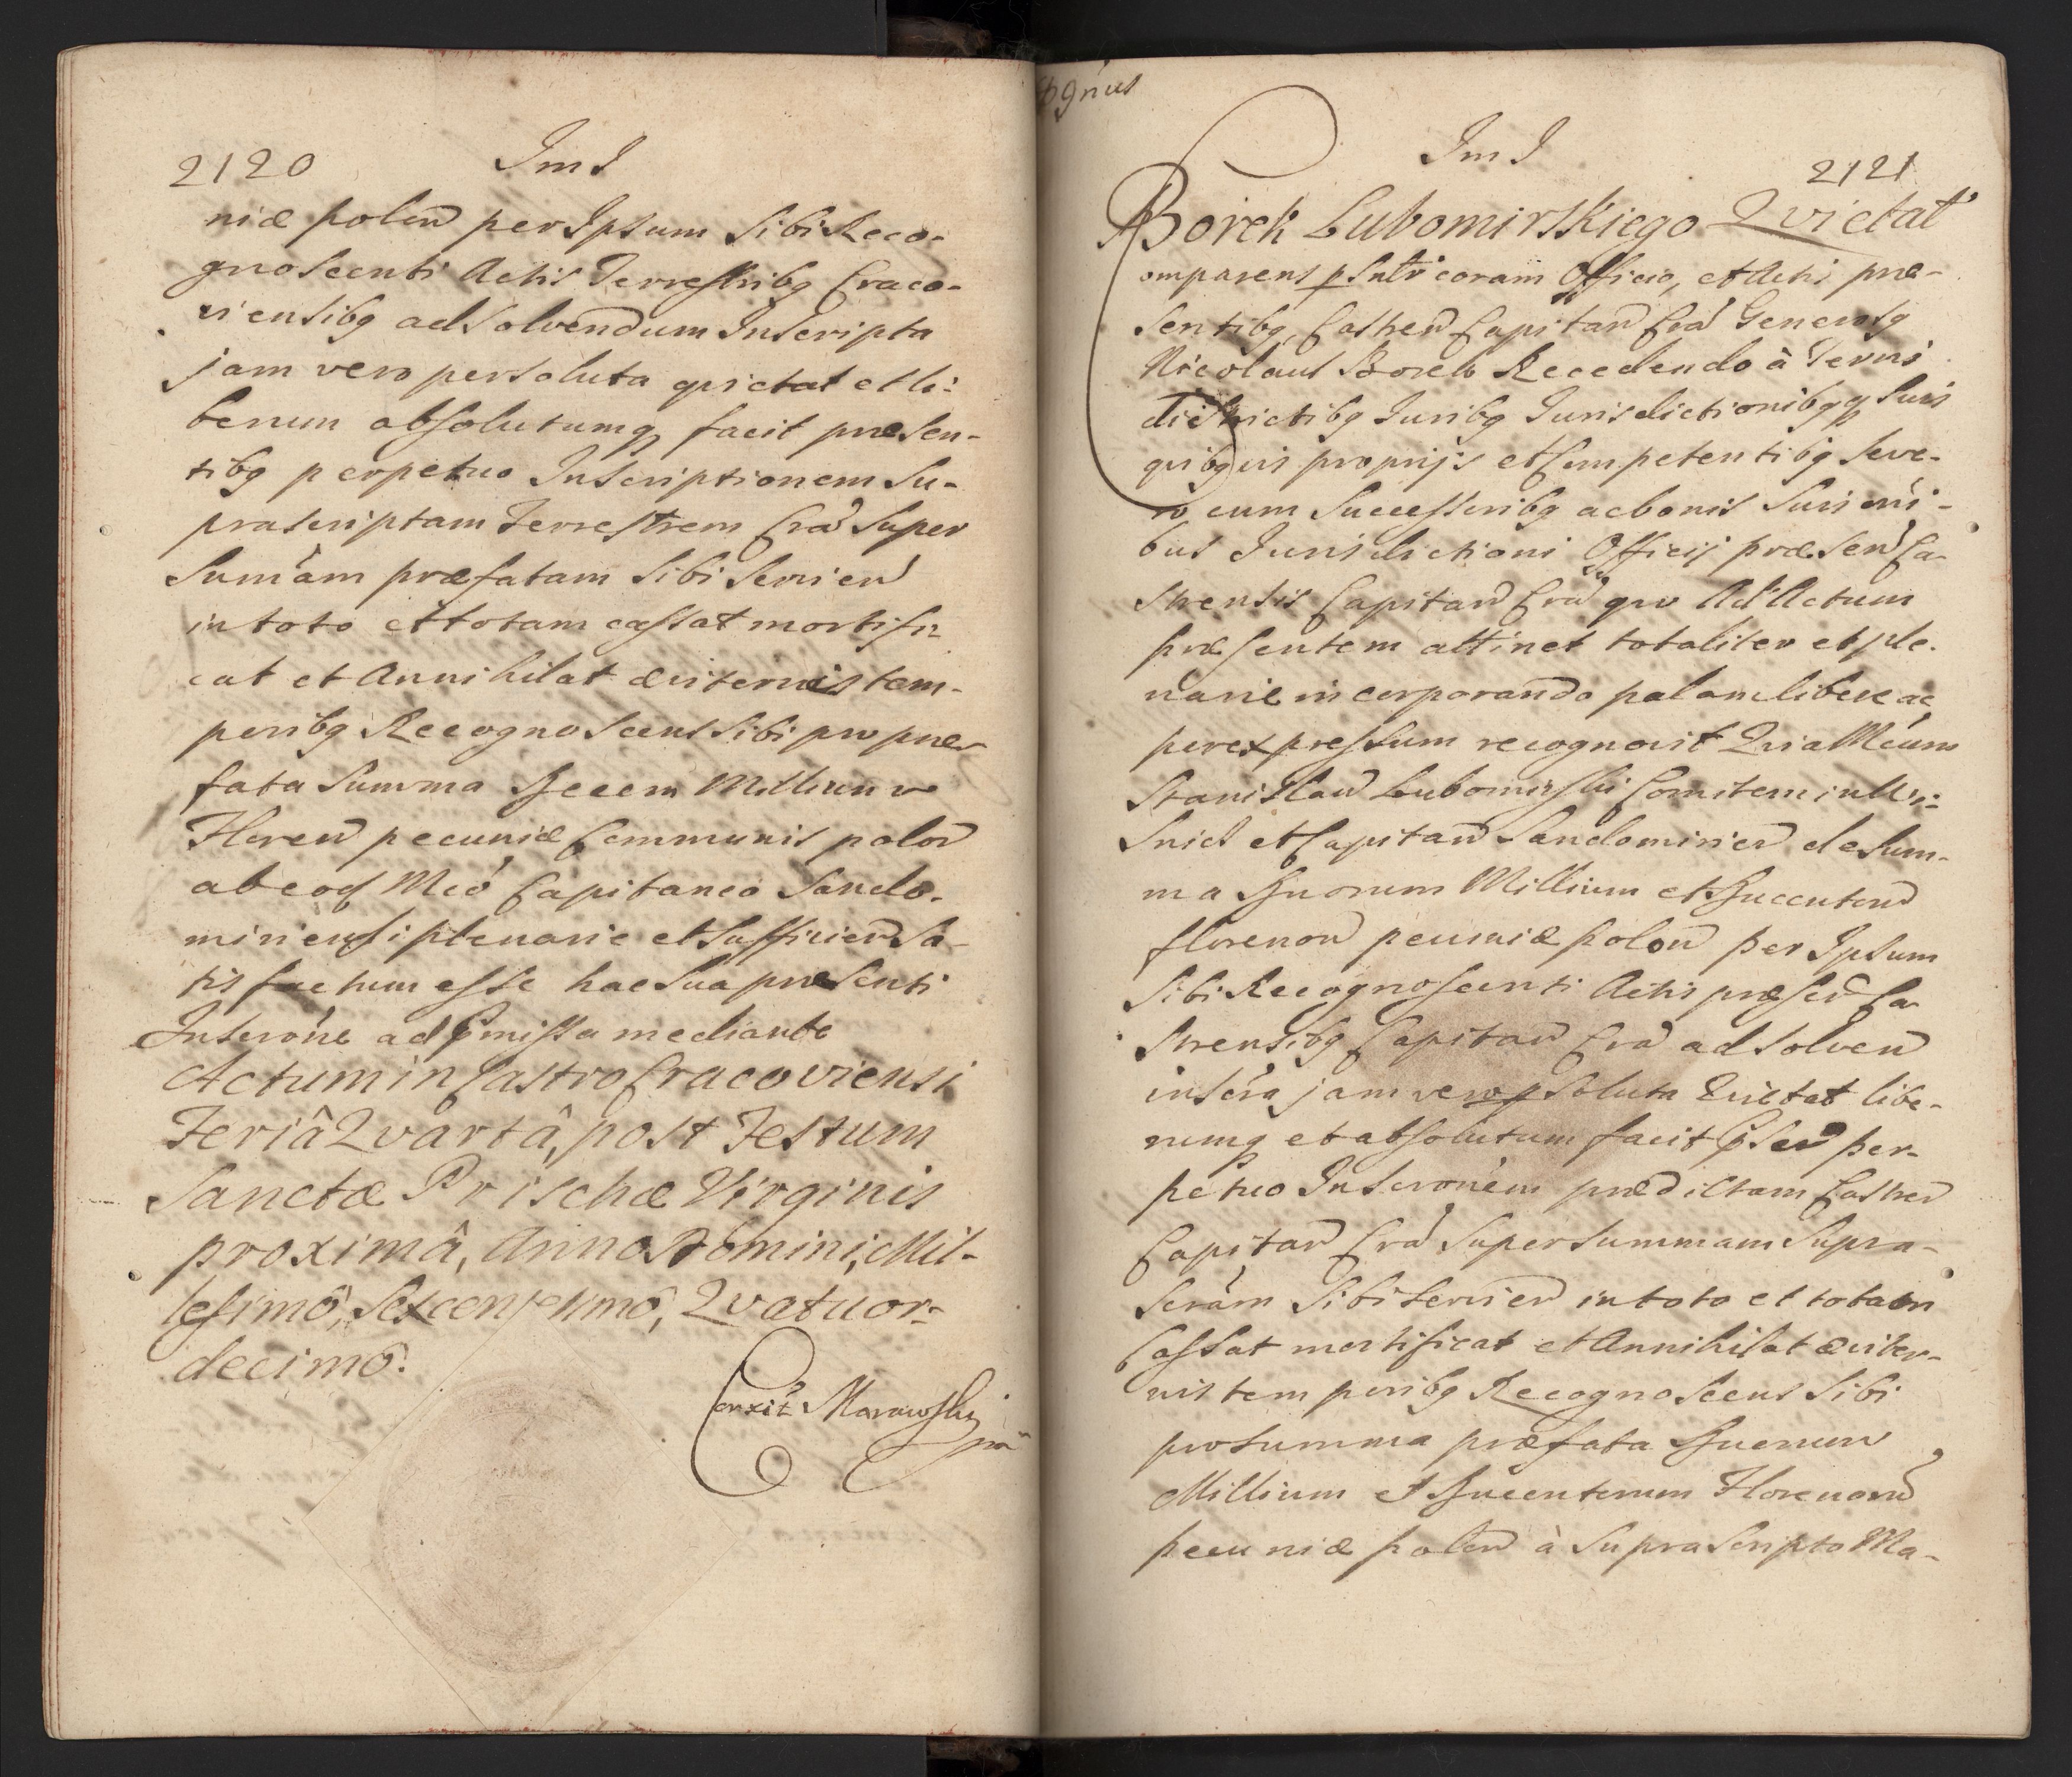 2120 ImI
niæ polon per Ipsum sibi Reco-
gnoscenti Actis Terrestribq Craco-
viensibq ad solvendum Inscripta
jam vero persoluta qvietat et li-
berum absolutumq facit præsen-
tibq perpetuo Inscriptionem Su-
prascriptam Terrestrem Cra Super
Summam præfatam Sibi Servien
in toto et totam cassat mortifi-
cat et Annihilat æviternis tem-
peribq Recognoscens Sibi pro præ-
fata Summa Decem Millium
Floren pecuniæ Communis polon
ab eod Mco Capitaneo Sando-
miriensi plenarie et sufficien Sa-
tis factum esse hac Sua præsenti
Inscrone ad pmissa mediante
Actum in Castro Cracoviensi
Feriâ Qvartâ, post Festum
Sanctæ Prischæ Virginis
proximâ, Anno Domini, Mil-
lesimô, Sexcentesimô, Qvatuor-
decimô.
Corxit Morawski
mp
gnus
ImI 2121
Borek Lubomirskiego Qvietat
omparens psntr coram Officio, et Actis præ-
sentibq, Castren Capitan Cra Generosq
Nicolaus Borek Recedendo à Terris
districtibq Juribq Jurisdictionibqq Suis
qvibqvis proprijs et Competentibq Seve-
ro cum Successoribq ac bonis Suis omi-
bus Jurisdictioni Officij præsen Ca-
strensis Capitan Cra qvo Ad Actum
præsentem attinet totaliter et ple-
narie incorporando palam libere ac
per expressum recognovit Qvia Mcum
Stanislau Lubomirski Comitem in Wi-
snicz et Capitan Sandomirien de Sum-
ma Duorum Millium et Ducenton
florenon pecuniæ polon per Ipsum
Sibi Recognoscenti Actis præsen Ca-
strensibq Capitan Cra ad solven
inscra jam vero psoluta Qvietat libe-
rumq et absolutum facit psen per-
petuo Inscronem prædictam Castren
Capitan Cra Super Summam Supra-
scram Sibi Servien in toto et totam
Cassat mortificat et Annihilat æviter-
nis temporibq Recognoscens Sibi
pro summa præfata Duorum
Millium et Ducentorum Florenoru
pecuniæ polon à Suprascripto Ma-